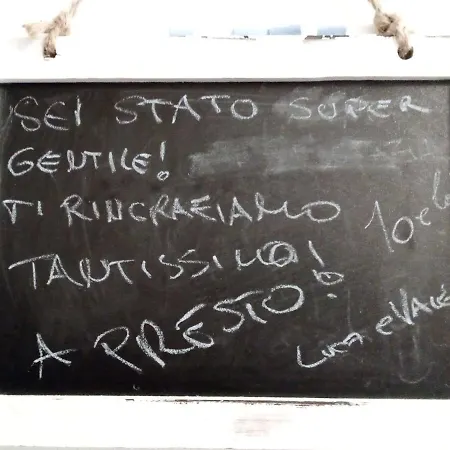 SEI STATO SUPER
GENTILE!
TI RINGRAZIAMO
TANTISSIMO!
10 e
A PRESTO!
LUCA e VALE